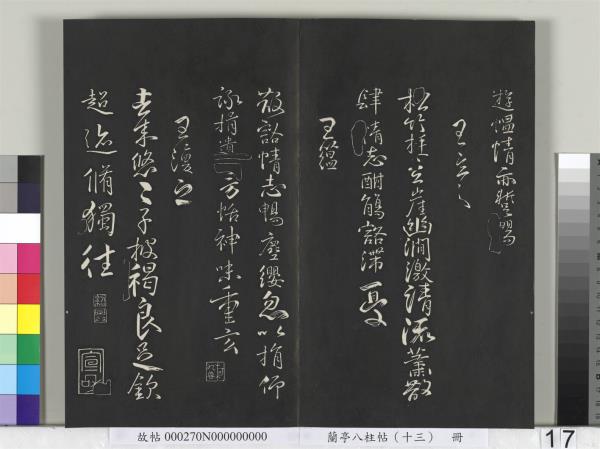 情亦暫暢
王玄之
松竹挺巖崖幽澗激清流蕭散
肆情志酣觴豁滯憂
王蘊
散豁情志暢塵纓忽以捐仰
詠揖遺芳怡神味重玄
王渙之
去來悠悠子披褐良足欽
超跡脩獨往
故帖 000270N000000000 蘭亭八柱帖(十三) 冊
17